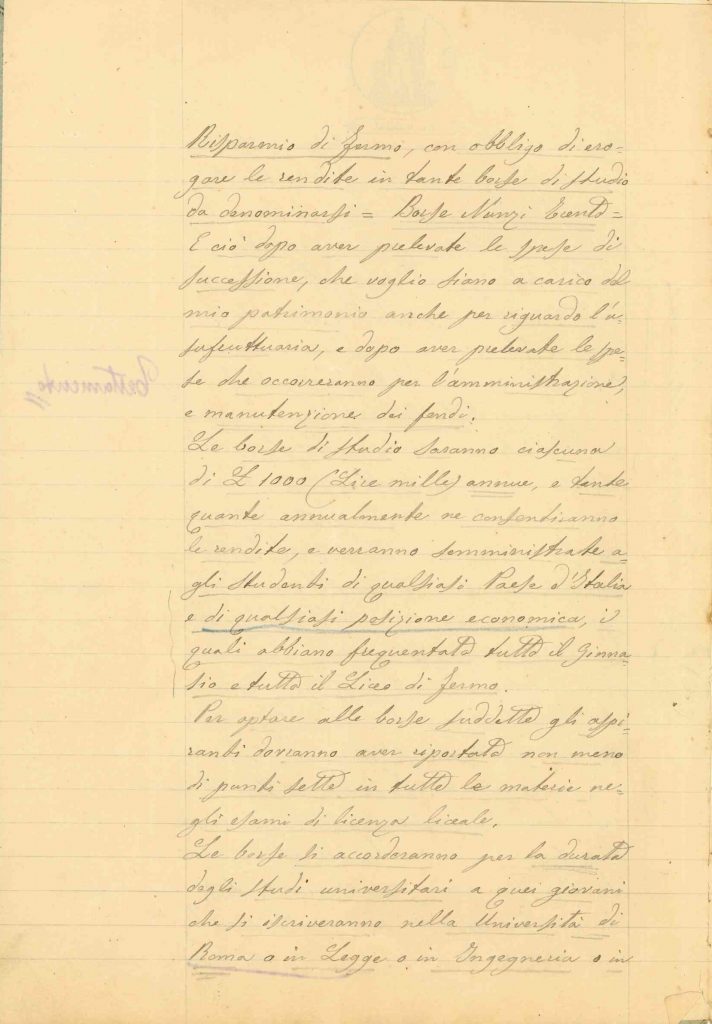 Risparmio di Fermo, con obbligo di ero-
gare le rendite in tante borse di studio
da denominarsi = Borse Nunzi
E ciò dopo aver prelevate le spese di
successione, che voglio siano a carico del
mio patrimonio anche per riguardo l'u-
sufruttuaria, e dopo aver prelevate le spe-
se che occorreranno per l'amministrazione,
e manutenzione dei fondi.
Le borse di studio saranno ciascuna
di £ 1000 (Lire mille) annue, e tante
quante annualmente ne consentiranno
le rendite, e verranno somministrate a-
gli studenti di qualsiasi Paese d'Italia
e di qualsiasi posizione economica, i
quali abbiano frequentato tutto il Ginna-
sio e tutto il Liceo di Fermo.
Per optare alle borse suddette gli aspi-
ranti dovranno aver riportato non meno
di punti sette in tutte le materie ne-
gli esami di licenza liceale.
Le borse si accorderanno per la durata
degli studi universitari a quei giovani
che si iscriveranno nella Università di
Roma o in Legge o in Ingegneria o in
Testamento